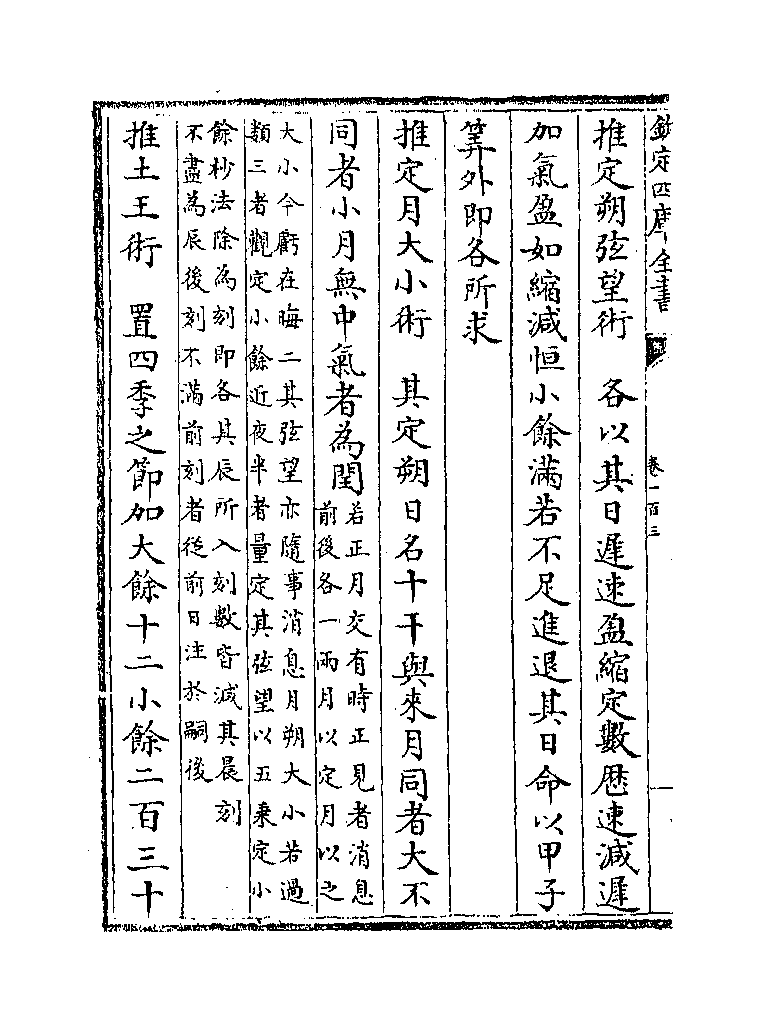 欽定四庫全書
卷一百三
推定朔弦望術　各以其日遲速盈縮定數厯速減遲
加氣盈如縮減恒小餘滿若不足進退其日命以甲子
筭外即各所求
推定月大小術　其定朔日名十干與來月同者大不
同者小月無中氣者為閏若正月交有時正見者消息
前後各一兩月以定月以之
大小今虧在晦二其弦望亦隨事消息月朔大小若過
類三者觀定小餘近夜半者量定其弦望以五乗定小
餘秒法除為刻即各其辰所入刻數皆減其晨刻
不盡為辰後刻不滿前刻者從前日注於嗣後
推土王術　置四季之節加大餘十二小餘二百三十